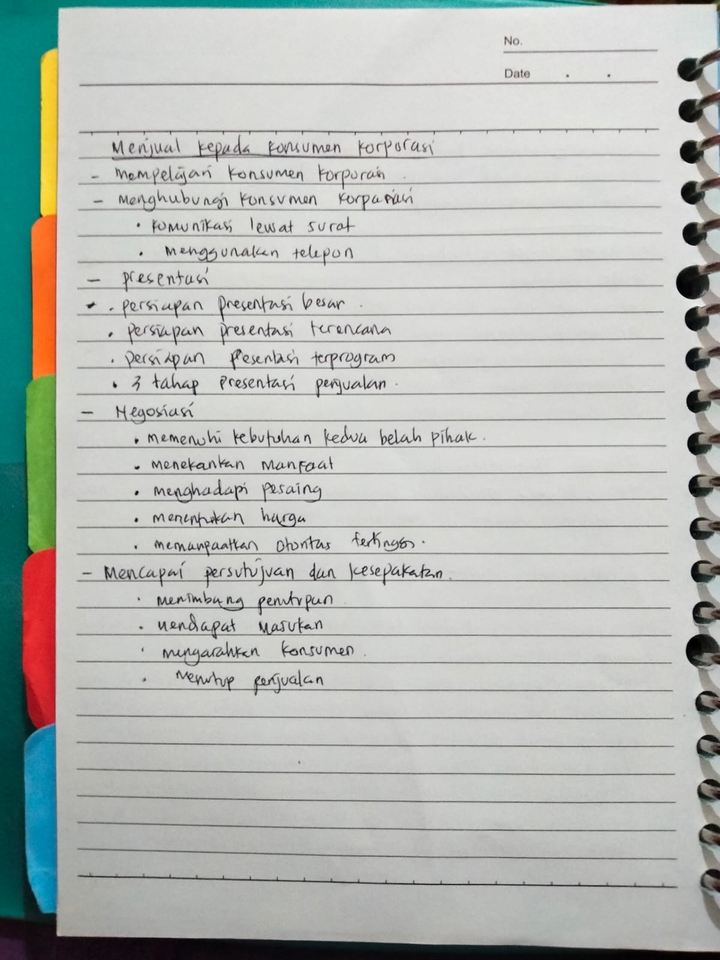 No.
Date . .
Menjual kepada konsumen korporasi
- mempelajari konsumen korporasi.
- menghubungi konsumen korporasi
• komunikasi lewat surat
• menggunakan telepon
- presentasi
• persiapan presentasi besar.
• persiapan presentasi terencana
• persiapan presentasi terprogram
• 3 tahap presentasi penjualan.
- Negosiasi
• memenuhi kebutuhan kedua belah pihak.
• menekankan manfaat
• menghadapi pesaing
• menentukan harga
• memanfaatkan otoritas tertinggi.
- Mencapai persutujuan dan kesepakatan.
• menimbang penutupan
• mendapat masukan
• mengarahkan konsumen.
• Menutup penjualan